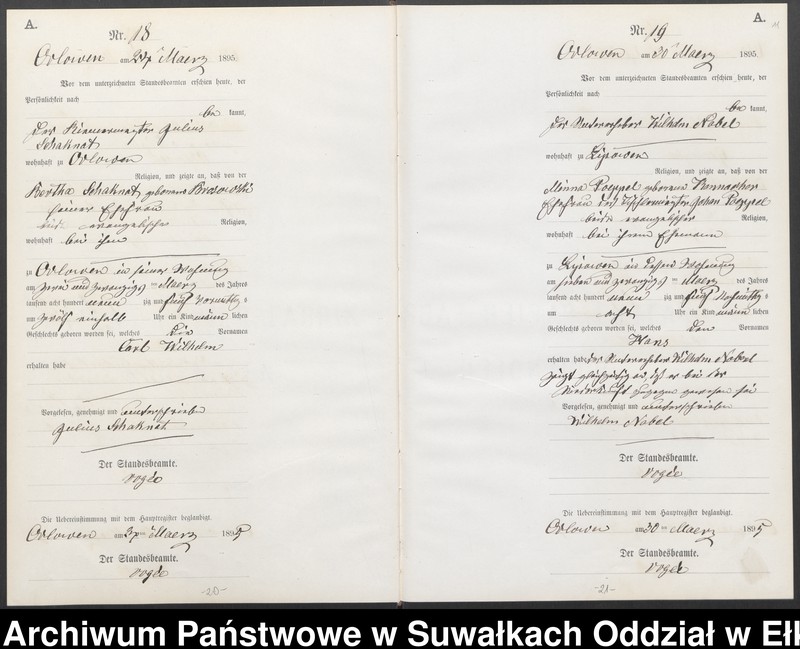 A.
Nr. 18
Odlowen am 27ᵗ Maerz 1895
Vor dem unterzeichneten Standesbeamten erschien heute, der
Persönlichkeit nach
be kannt,
der Riemermeister Julius
Schaknat
wohnhaft zu Odlowen
Religion, und zeigte an, daß von der
Bertha Schaknat geborene
seiner Ehefrau
evangelische Religion,
wohnhaft bei ihm
zu Odlowen in seiner Wohnung
am zwei und zwanzigsten Maerz des Jahres
tausend acht hundert neun zig und fünf Vormittags
um zwölf einhalb Uhr ein Kind männ lichen
Geschlechts geboren worden sei, welches die Vornamen
Carl Wilhelm
erhalten habe
Vorgelesen, genehmigt und unterschrieben
Julius Schaknat
Der Standesbeamte.
Vogée
Die Uebereinstimmung mit dem Hauptregister beglaubigt.
Odlowen am 27ten Maerz 1895
Der Standesbeamte.
Vogée
-20-
A.
Nr. 19
Odlowen am 30ᵗ Maerz 1895.
Vor dem unterzeichneten Standesbeamten erschien heute, der
Persönlichkeit nach
be kannt,
der Wilhelm Nabel
wohnhaft zu Lipowen
Religion, und zeigte an, daß von der
Minna Poeppel geborene
Ehefrau des Tischlermeister Johan Poeppel
beide evangelischer Religion,
wohnhaft bei ihrem Ehemann
zu Lipowen in dessen Wohnung
am sieben und zwanzigsten Maerz des Jahres
tausend acht hundert neun zig und fünf Nachmittags
um acht Uhr ein Kind männ lichen
Geschlechts geboren worden sei, welches den Vornamen
Hans
erhalten habe der Wilhelm Nabel
zeigt gleichzeitig an, daß er bei der
Niederkunft zugegen gewesen sei
Vorgelesen, genehmigt und unterschrieben
Wilhelm Nabel
Der Standesbeamte.
Vogée
Die Uebereinstimmung mit dem Hauptregister beglaubigt.
Odlowen am 30ten Maerz 1895
Der Standesbeamte.
Vogée
-21-
Archiwum Państwowe w Suwałkach Oddział w Ełk